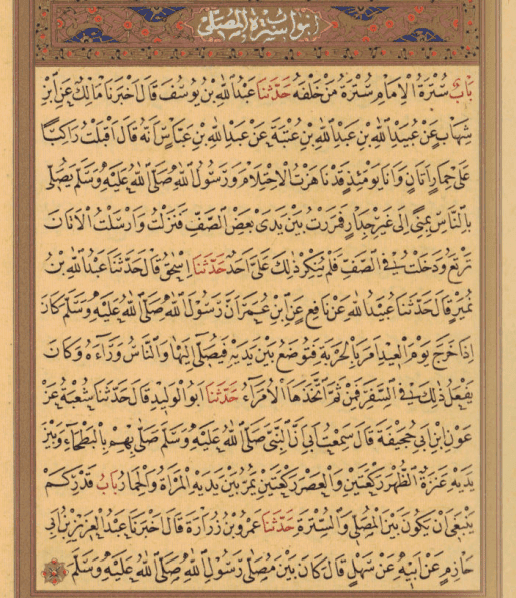 ابواب سترة المصلى
باب سترة الامام سترة من خلفه حدثنا عبد الله بن يوسف قال اخبرنا مالك عن ابن
شهاب عن عبيد الله بن عبد الله بن عتبة عن عبد الله بن عباس انه قال اقبلت راكبا
على حمار اتان وانا يومئذ قد ناهزت الاحتلام ورسول الله صلى الله عليه وسلم يصلى
بالناس بمنى الى غير جدار فمررت بين يدى بعض الصف فنزلت وارسلت الاتان
ترتع ودخلت فى الصف فلم ينكر ذلك على احد حدثنا اسحق قال حدثنا عبد الله بن
نمير قال حدثنا عبيد الله عن نافع عن ابن عمر ان رسول الله صلى الله عليه وسلم كان
اذا خرج يوم العيد امر بالحربة فتوضع بين يديه فيصلى اليها والناس وراءه وكان
يفعل ذلك فى السفر فمن ثم اتخذها الامراء حدثنا ابو الوليد قال حدثنا شعبة عن
عون بن ابى جحيفة قال سمعت ابى ان النبى صلى الله عليه وسلم صلى بهم بالبطحاء وبين
يديه عنزة الظهر ركعتين والعصر ركعتين يمر بين يديه المراة والحمار باب قدر كم
ينبغى ان يكون بين المصلى والسترة حدثنا عمرو بن زرارة قال اخبرنا عبد العزيز بن ابى
حازم عن ابيه عن سهل قال كان بين مصلى رسول الله صلى الله عليه وسلم